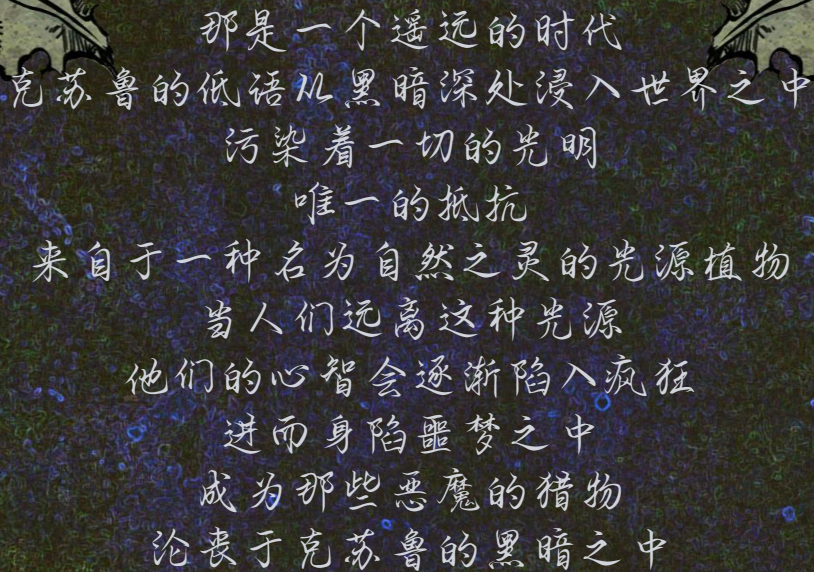 那是一个遥远的时代
克苏鲁的低语从黑暗深处浸入世界之中
污染着一切的光明
唯一的抵抗
来自于一种名为自然之灵的光源植物
当人们远离这种光源
他们的心智会逐渐陷入疯狂
进而身陷噩梦之中
成为那些恶魔的猎物
沦丧于克苏鲁的黑暗之中